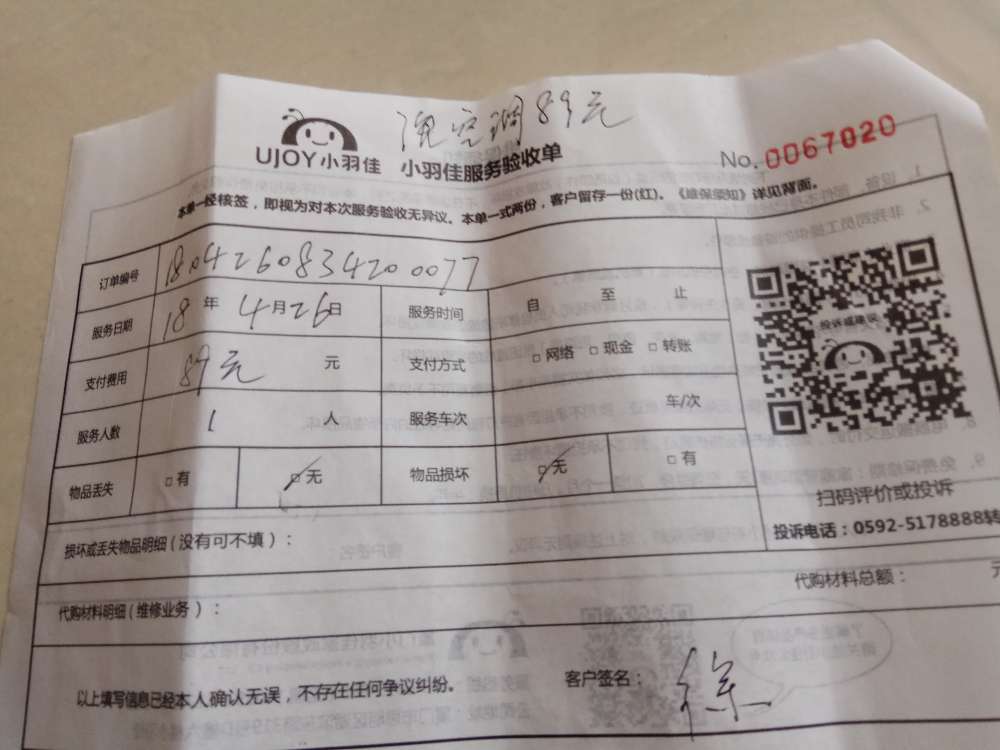 洗空调89元
UJOY小羽佳 小羽佳服务验收单 No.0067020
本单一经核签，即视为对本次服务验收无异议。本单一式两份，客户留存一份(红)。《维保须知》详见背面。
订单编号 1804260834200077
服务日期 18年4月26日 服务时间 自 至 止
支付费用 89元 元 支付方式 □网络 □现金 □转账
服务人数 1 人 服务车次 车/次
物品丢失 □有 □无 物品损坏 □无 □有
投诉或建议
扫码评价或投诉
投诉电话：0592-5178888转
损坏或丢失物品明细(没有可不填)：
代购材料明细(维修业务)： 代购材料总额： 元
以上填写信息已经本人确认无误，不存在任何争议纠纷。 客户签名：